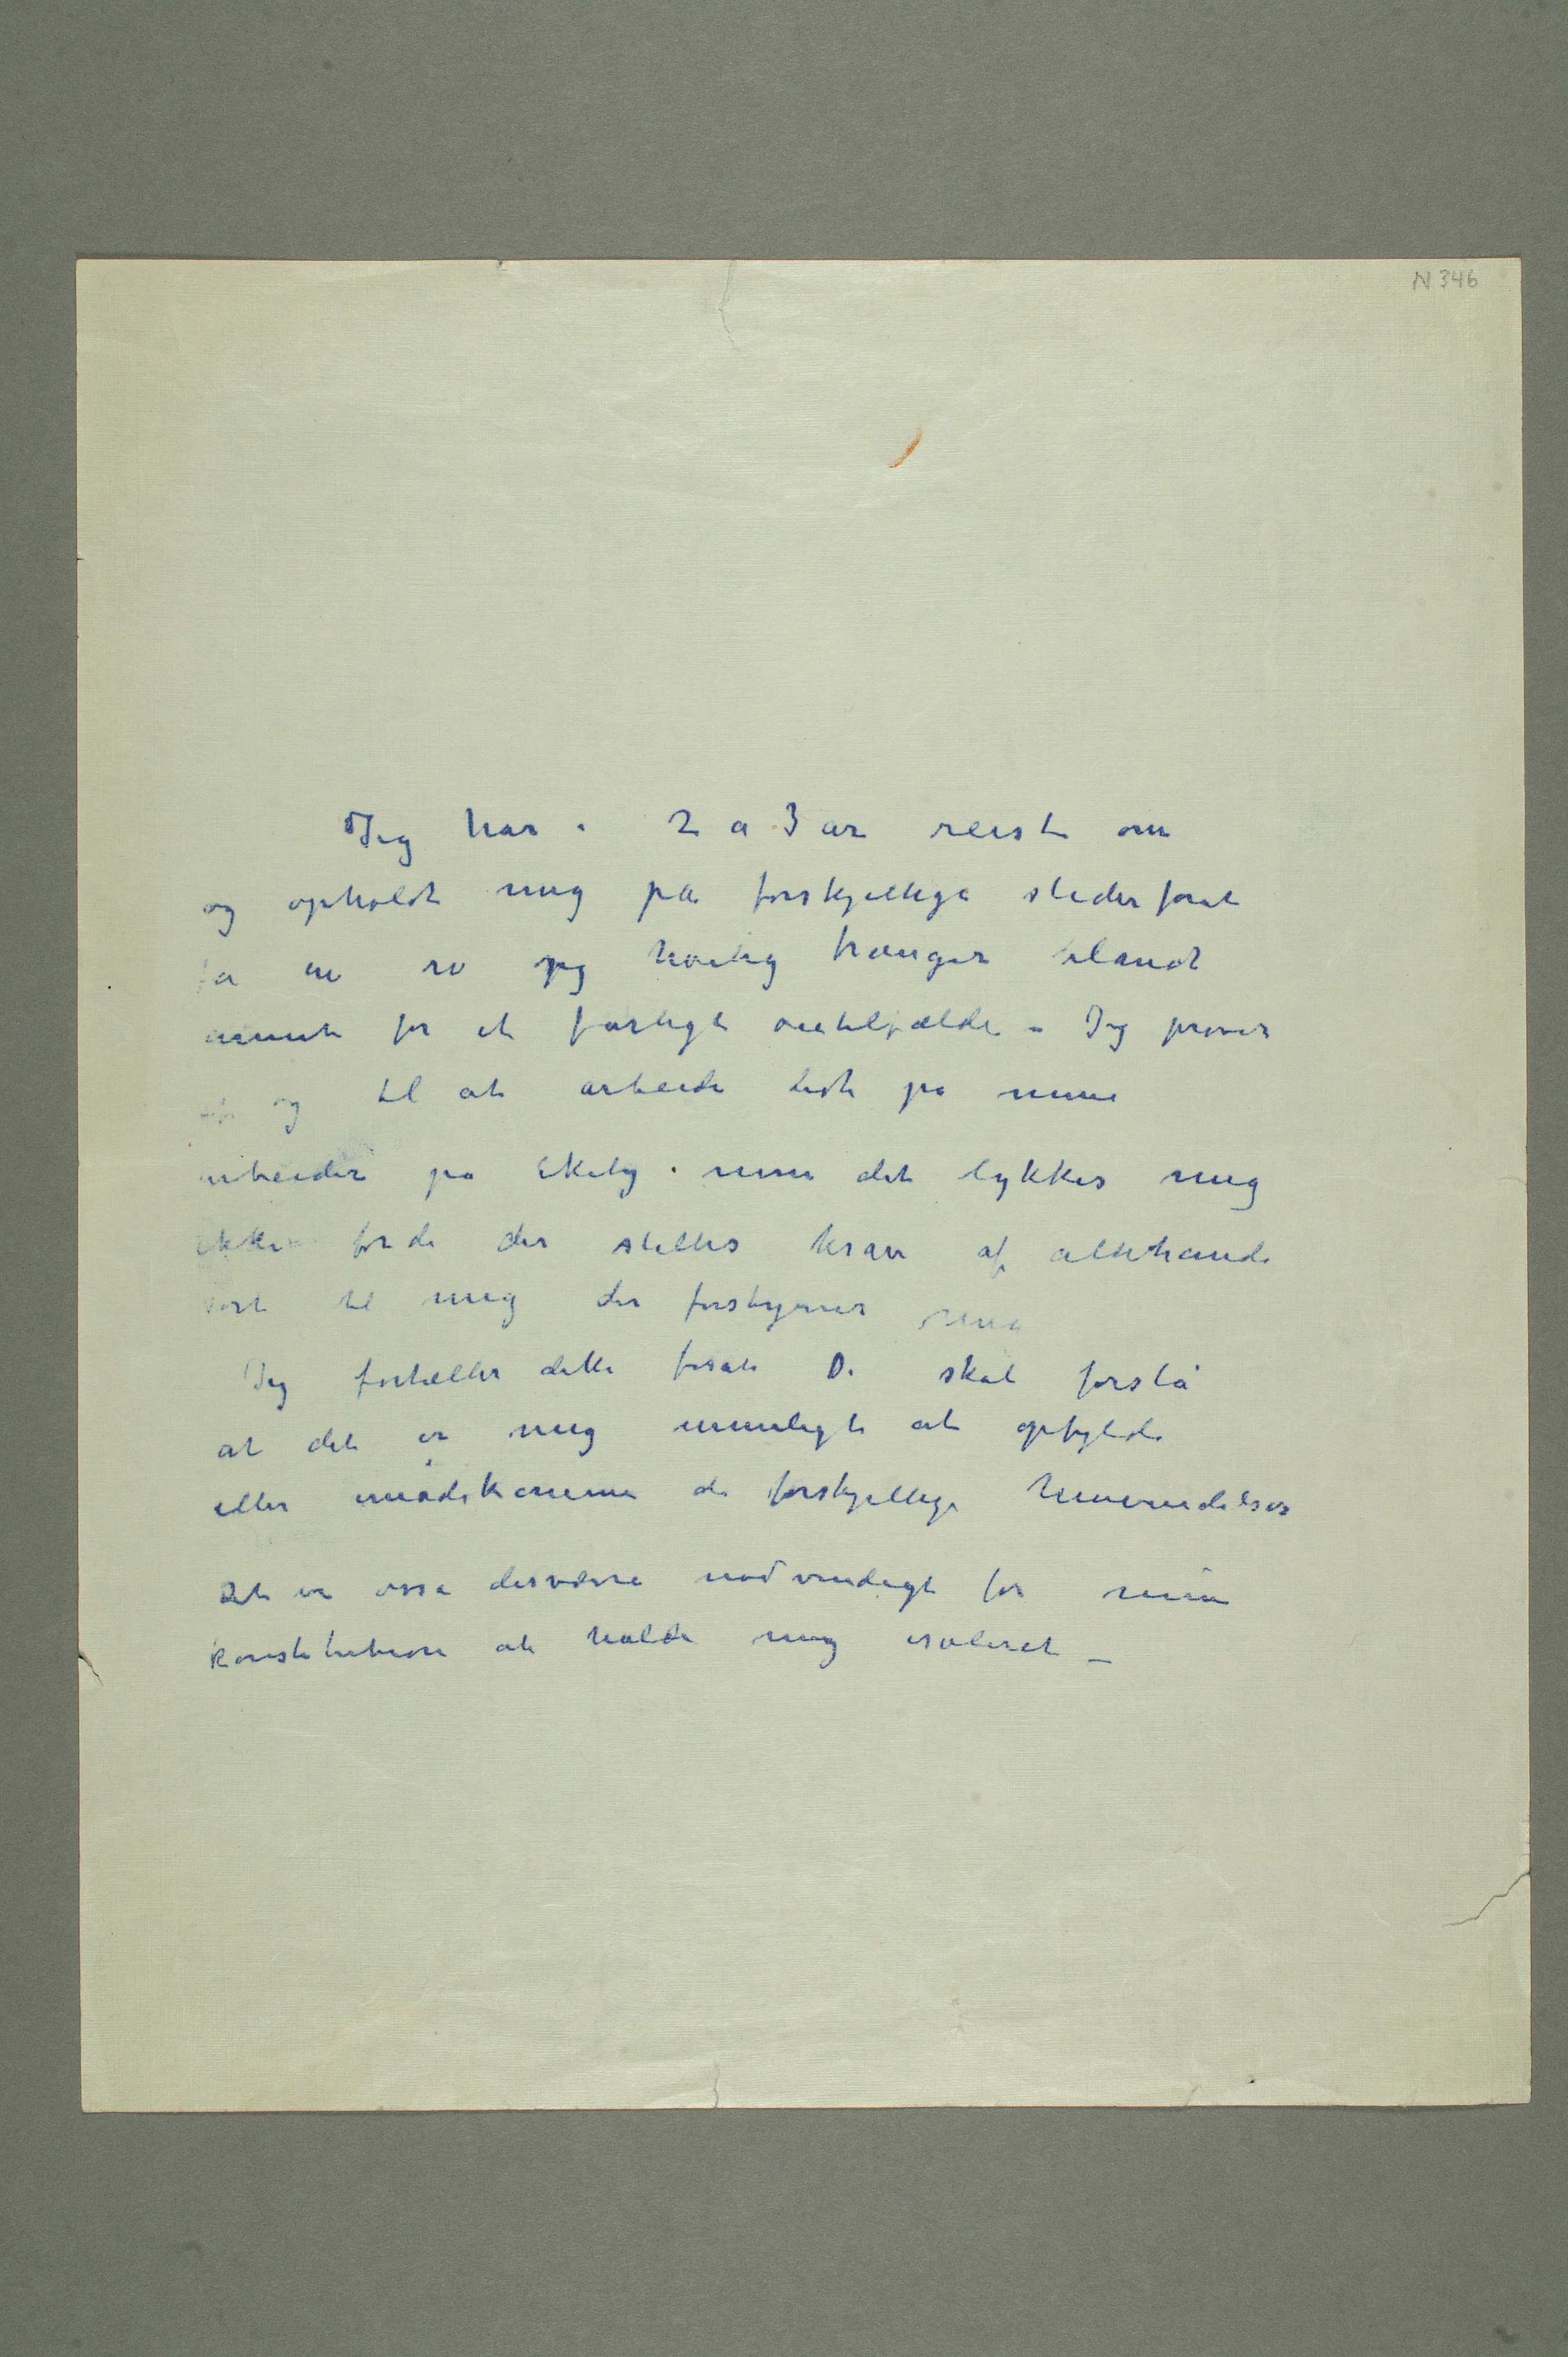 N 346
Jeg har i 2 a 3 år reist om
og opholdt mig på forskjellige steder forat
få en ro jeg hårdt trænger blandt
annet for et farligt øientilfælde – Jeg prøver
og til at arbeide lidt på mine
arbeider på Ekely. men det lykkes mig
ikke fordi der stilles krav af allehande
sort til mig der forstyrrer mig
Jeg fortæller dette forat De skal forstå
at det er mig umuligt at opfylde
eller imødekomme de forskjellige henvendelser
Det er osså desværre nødvendigt for min
konstitution at holde mig isoleret –